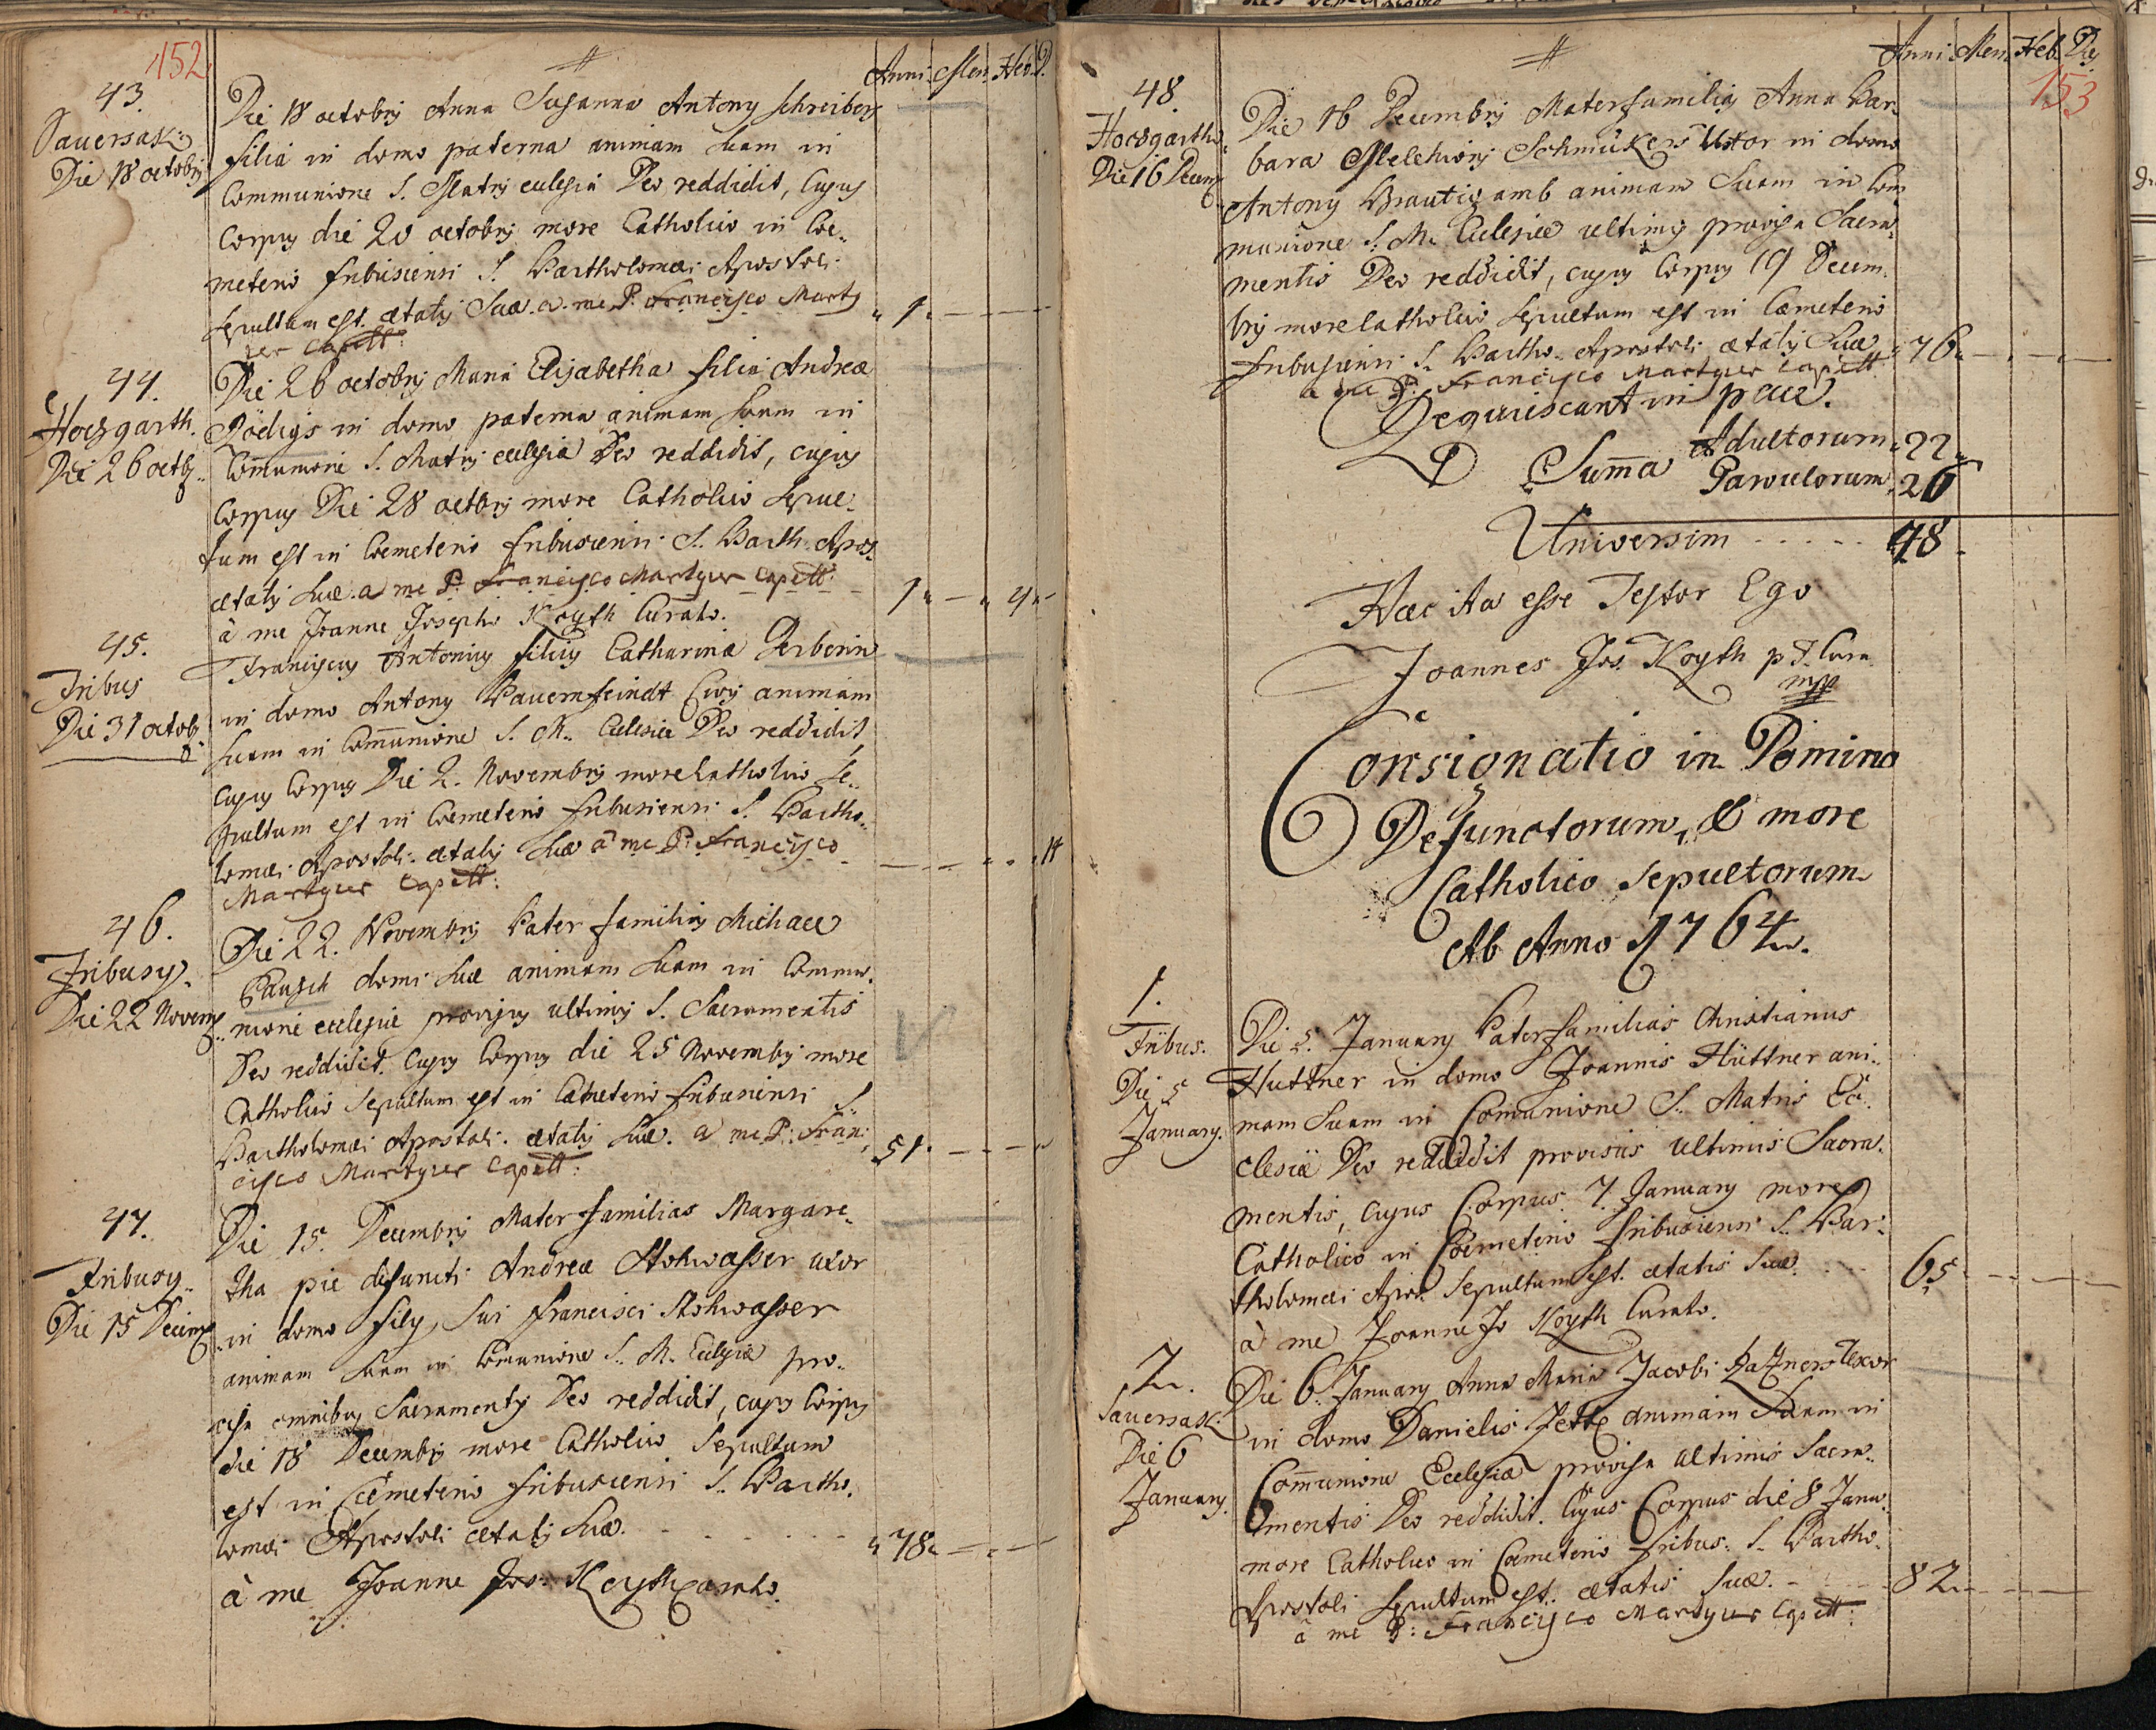 152
Anni. Men. Heb. D.
43.
Sauersak:
Die 18 octobrÿ
Die 18 octobrÿ Anna Susanna Antony Schreibers
filia in domo paterna animam suam in
Communione S. Matrÿ eclesia Deo reddidit, Cujus
Corpus die 20 octobrÿ more Catholico in Coe„
meterio fribusiensi S. Bartholomæi Apostoli
sepultum est. ætatÿ Suæ. a. me P. Francisco Marty
rer Capell: 1.
44.
Hochgarth.
Die 26 octb
Die 26 octobrÿ Maria Elisabetha filia Andreæ
Rödigs in domo paterna animam suam in
Com̄unione S. Matrÿ eclesia Deo reddidit, cujus
Corpus Die 28 octobrÿ more Catholico sepul„
tum est in Coemeterio fribusiensi S. Barth. Apos.
ætatÿ suæ. a me P. Francisco Martyrer Capell: 1. 4.
à me Joanne Josepho Koyth Curato.
45.
Fribus
Die 31 octob
Franciscus Antonius filius Catharina Gerberin
in domo Antony Bauernfeindt Civÿ animam
suam in Com̄unione S. M. Eclesiæ Deo reddidit,
cujus Corpus Die 2. Novembrÿ more Catholico se„
pultum est in Coemeterio fribusiensi S. Bartho„
lomæi Apostoli. ætatÿ suæ à me P: Francisco
Martyrer Capell: 14
46.
Fribusÿ.
Die 22 Novemb
Die 22. Novembrÿ Pater familias Michael
Bausch domi suæ animam suam in Commu„
nione eclesiæ provisus ultimis S. Sacramentis
Deo reddidit. Cujus Corpus die 25 Novembrÿ more
Catholico sepultum est in Cæmeterio fribusiensi S.
Bartholomæi Apostoli. ætatÿ suæ. a me P: Fran: 51.
cisco Martyrer Capell:
47.
Fribusÿ.
Die 15 Decemb
Die 15. Decembrÿ Mater familias Margare„
tha pie defuncti Andreæ Stohwasser uxor
in domo filÿ sui Francisci Stohwasser
animam suam in Comunione S. M. Eclesiæ pro„
visa omnibus Sacramentÿ Deo reddidit, cujus Corpus
die 18 Decembrÿ more Catholico sepultum
est in Cæmeterio fribusiensi S. Bartho„
lomæi Apostoli ætatÿ suæ. 78.
à me Joanne Jos: Koyth Curato.
153
Anni. Men. Heb. Die
48.
Hochgarth.
Die 16 Decemb
Die 16 Decembrÿ Materfamilias Anna Bar„
bara Melchiorÿ Schmükers Uxor in domo
Antony Brautigamb animam suam in Com„
munione S. M. Eclesiæ ultimis provisa Sacra„
mentis Deo reddidit, cujus Corpus 19 Decem„
brÿ more Catholico sepultum est in Cæmeterio
fribusiensi S. Bartho. Apostoli ætatÿ suæ 76.
a me P: Francisco Martyrer Capell:
Requiescant in pace.
Sum̄a Adultorum 22
Parvulorum 26
Universim ..... 48.
Hæc ita esse Testor Ego
Joannes Jos. Koyth p.t. Cura
mpp
Consignatio in Domino
Defunctorum, & more
Catholico sepultorum
Ab Anno 1764.
1.
Fribus.
Die 5
January.
Die 5. January Paterfamilias Christianus
Huttner in domo Joannis Hüttner ani„
mam suam in Comunione S. Matris Ec„
clesiæ Deo reddidit provisus ultimis Sacra„
mentis, cujus Corpus 7. January more
Catholico in Coemeterio fribusiensi S. Bar„
tholomæi Apos. sepultum est. ætatis suæ. 65.
à me Joanne Jo Koyth Curato.
2.
Sauersak.
Die 6
January.
Die 6. January Anna Maria Jacobi Uxor
in domo Danielis animam suam in
Com̄unione Ecclesiæ provisa ultimis Sacra„
mentis Deo reddidit. Cujus Corpus die 8 Janu„
more Catholico in Coemeterio fribus. S. Bartho.
Apostoli sepultum est. ætatis suæ. 82.
à me P: Francisco Martyrer Capell: